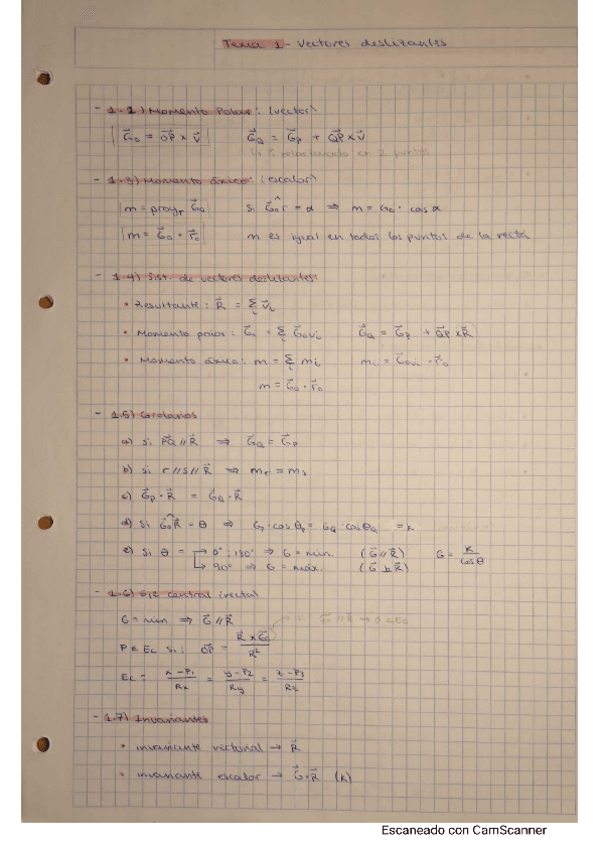 Tema 1- Vectores deslizantes
- 1.2) Momento Polar: (vector)
G⃗o = OP⃗ x V⃗    G⃗Q = G⃗P + QP⃗ x V⃗
relacionado en 2 puntos
- 1.3) Momento áxico: (escalar)
m = proyr G⃗o    Si G⃗o^r = α ⇒ m = Go · cos α
m = G⃗o · r⃗o    m es igual en todos los puntos de la recta
- 1.4) Sist. de vectores deslizantes:
• Resultante: R⃗ = Σi V⃗i
• Momento polar: G⃗o = Σi G⃗ovi    G⃗Q = G⃗P + QP⃗ x R⃗
• Momento áxico: m = Σi mi    mi = G⃗ovi · r⃗o
m = G⃗o · r⃗o
- 1.5) Corolarios
a) Si PQ⃗ // R⃗ ⇒ G⃗Q = G⃗P
b) Si r // s // R⃗ ⇒ mr = ms
c) G⃗P · R⃗ = G⃗Q · R⃗
d) Si G⃗o^R⃗ = θ ⇒ GP · cos θP = GQ · cos θQ = K
e) Si θ = → 0°, 180° ⇒ G = min. (G⃗ // R⃗)    G = K / cos θ
↳ 90° ⇒ G = máx. (G⃗ ⊥ R⃗)
- 1.6) Eje central (recta)
G = min ⇒ G⃗ // R⃗    G⃗ // R⃗ → O ∈ Ec
P ∈ Ec si: OP⃗ = R⃗ x G⃗o / R²
Ec: x - P1 / Rx = y - P2 / Ry = z - P3 / Rz
- 1.7) Invariantes
• invariante vectorial → R⃗
• invariante escalar → G⃗ · R⃗ (K)
Escaneado con CamScanner